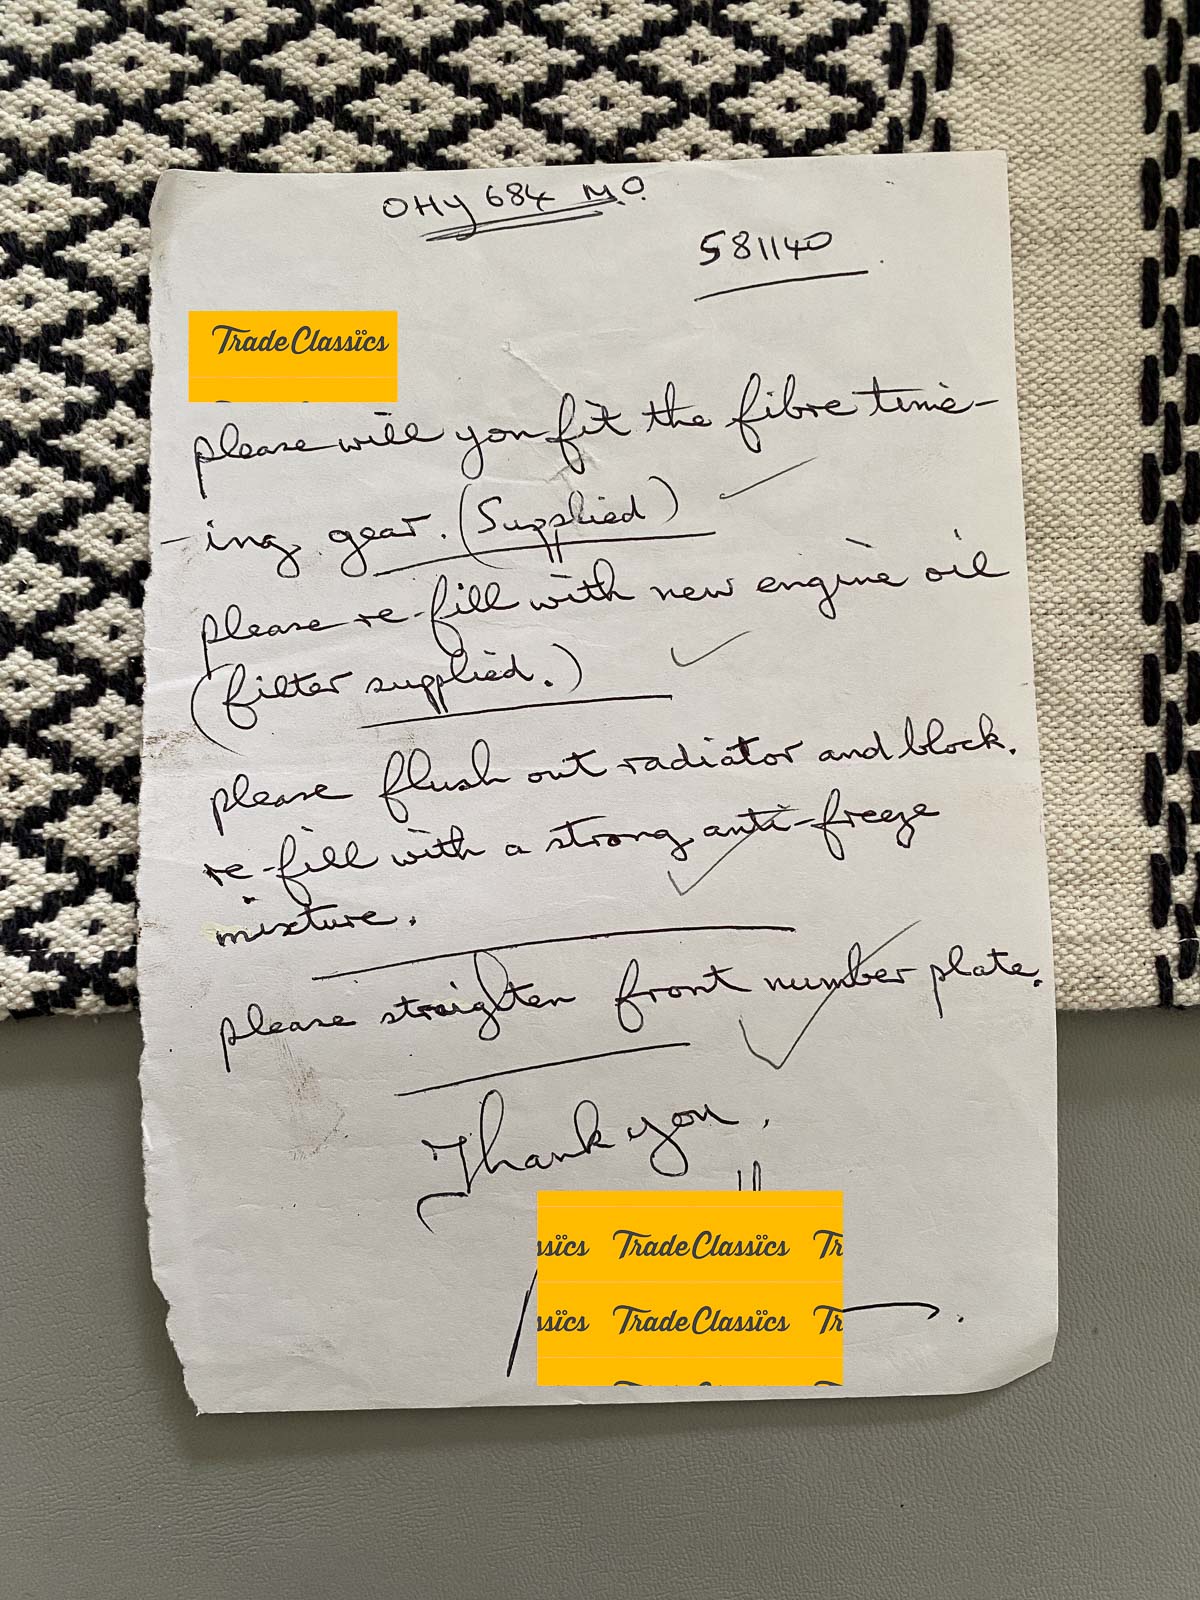 OHY 684 M.O.
581140
TradeClassics
please will you fit the fibre time-
-ing gear. (Supplied)
please re-fill with new engine oil
(filter supplied.)
please flush out radiator and block.
re-fill with a strong anti-freeze
mixture.
please straighten front number plate.
Thank you.
ssics TradeClassics Tr
ssics TradeClassics Tr